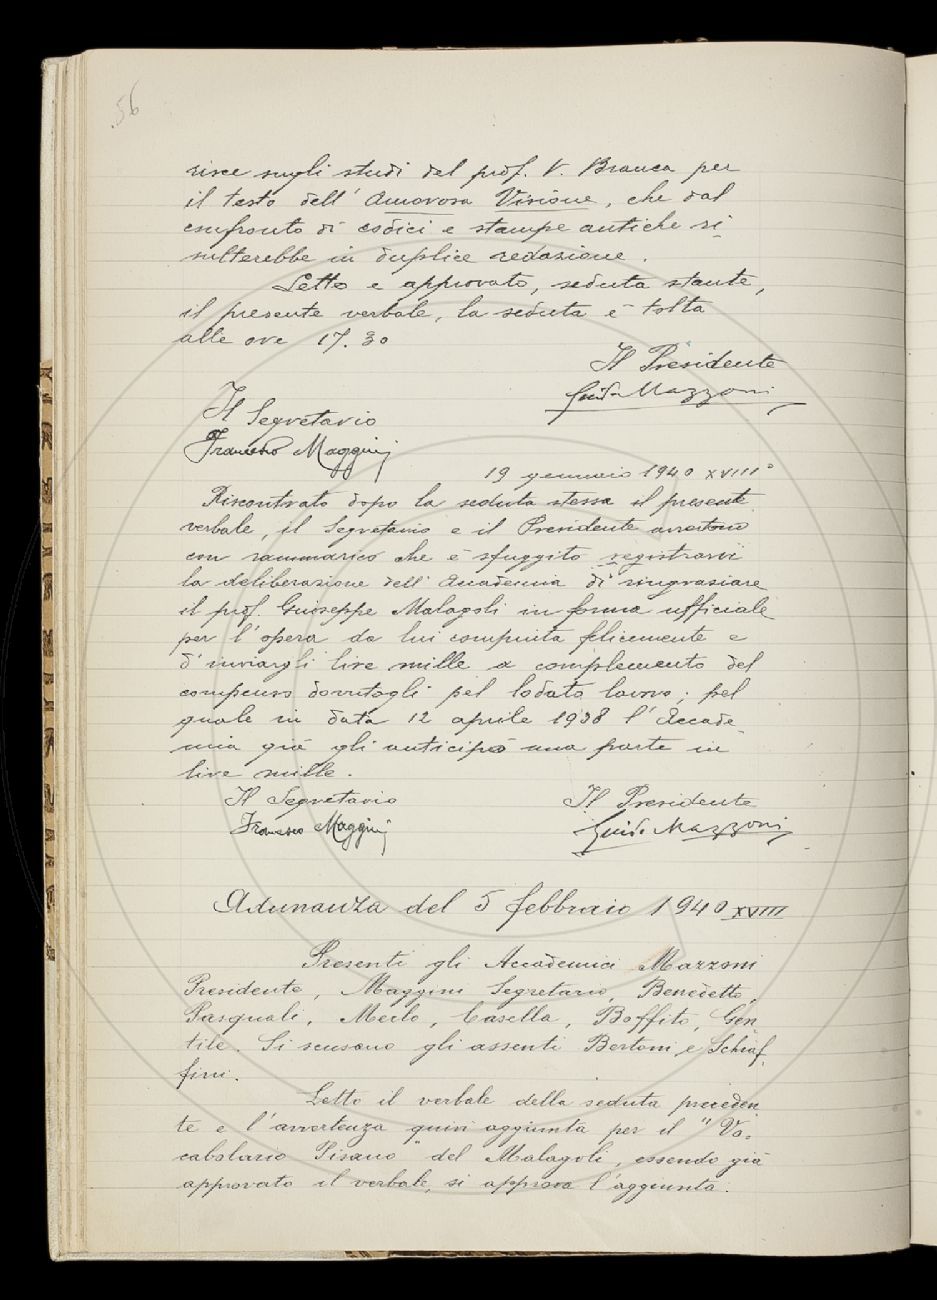 56
risce sugli studi del prof. V. Branca per
il testo dell' Amorosa Visione, che dal
confronto di codici e stampe antiche ri-
sulterebbe in duplice redazione.
Letto e approvato, seduta stante,
il presente verbale, la seduta è tolta
alle ore 17.30
Il Presidente
Guido Mazzoni
Il Segretario
Francesco Maggini
19 gennaio 1940 XVIII°
Riscontrato dopo la seduta stessa il presente
verbale, il Segretario e il Presidente avvertono
con rammarico che è sfuggito registrarvi
la deliberazione dell' Accademia di ringraziare
il prof. Guiseppe Malagoli in forma ufficiale
per l'opera da lui compiuta felicemente e
d'inviargli lire mille a complemento del
compenso dovutogli pel lodato lavoro; pel
quale in data 12 aprile 1938 l'Accade-
mia già gli anticipò una parte in
lire mille.
Il Segretario
Francesco Maggini
Il Presidente
Guido Mazzoni
Adunanza del 5 febbraio 1940 XVIII
Presenti gli Accademici Mazzoni
Presidente, Maggini Segretario, Benedetto,
Pasquali, Merlo, Casella, Boffito, Gen-
tile. Si scusano gli assenti Bertoni e Schiaf-
fini.
Letto il verbale della seduta preceden-
te e l'avvertenza quivi aggiunta per il "Vo-
cabolario Pisano" del Malagoli, essendo già
approvato il verbale, si approva l'aggiunta.